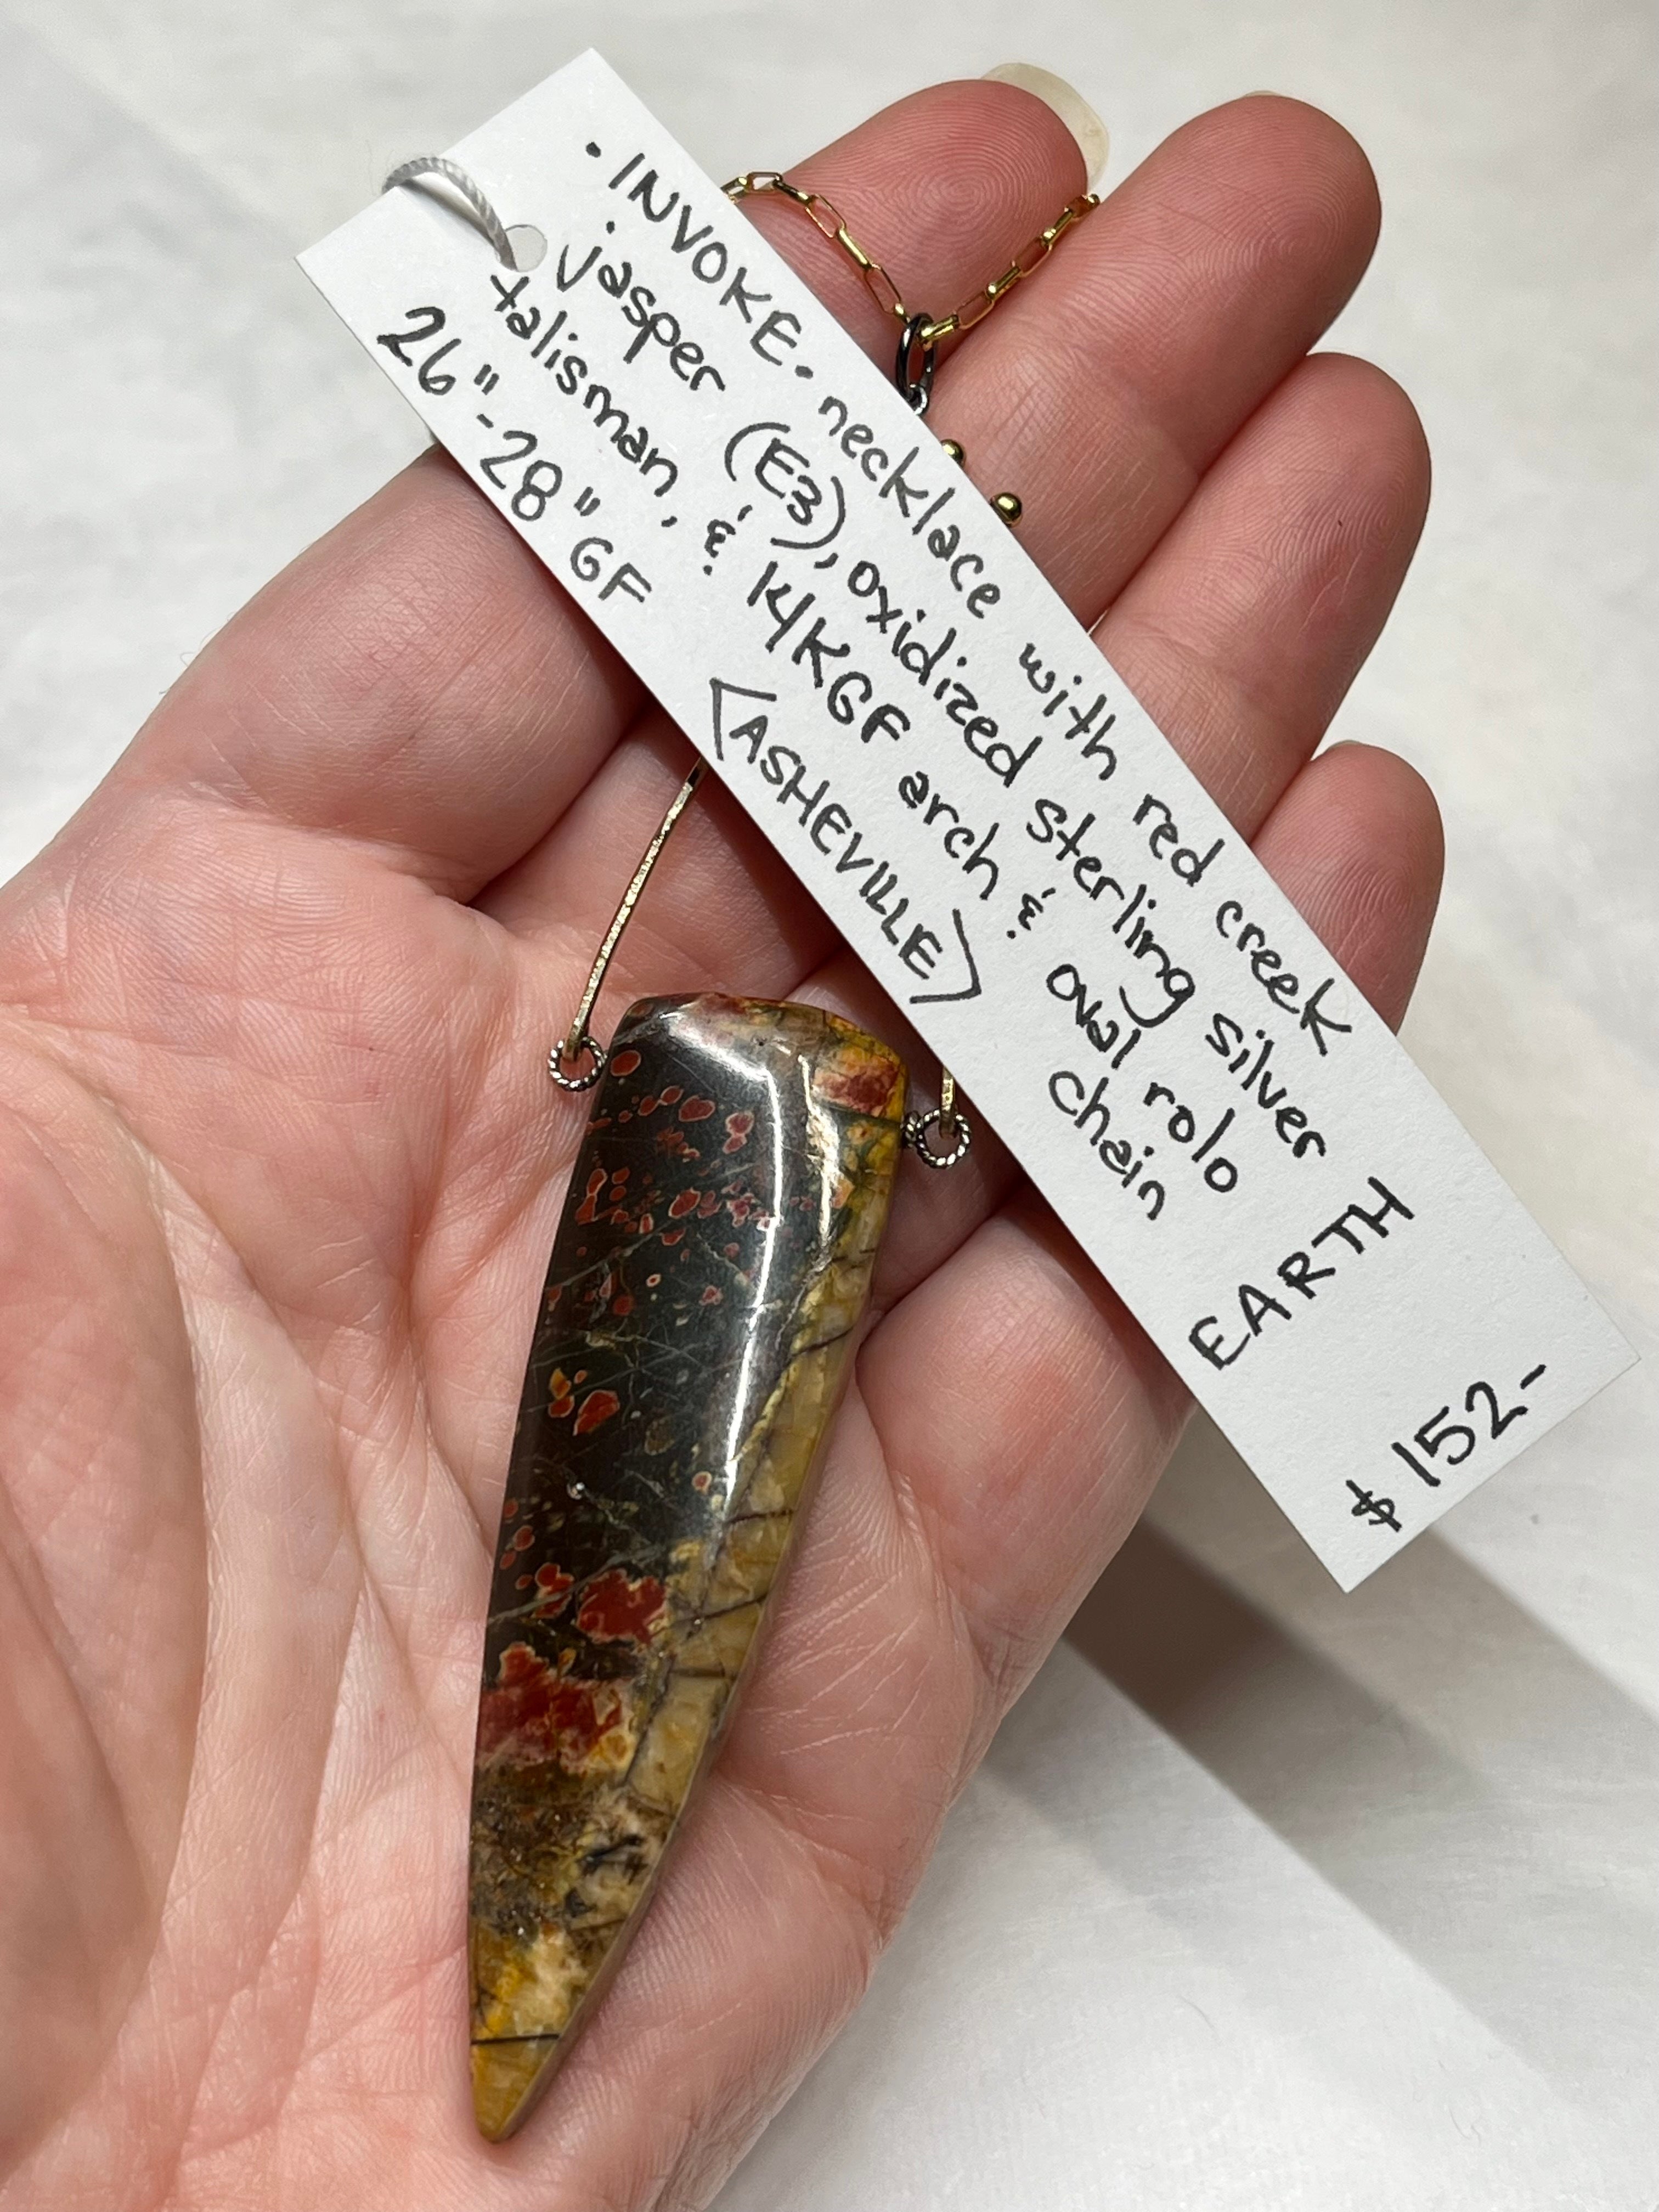 · INVOKE · necklace with red creek
jasper (E3), oxidized sterling silver
talisman, & 14KGF arch & oval rolo
chain
26"-28" GF
<ASHEVILLE>
EARTH
$152-